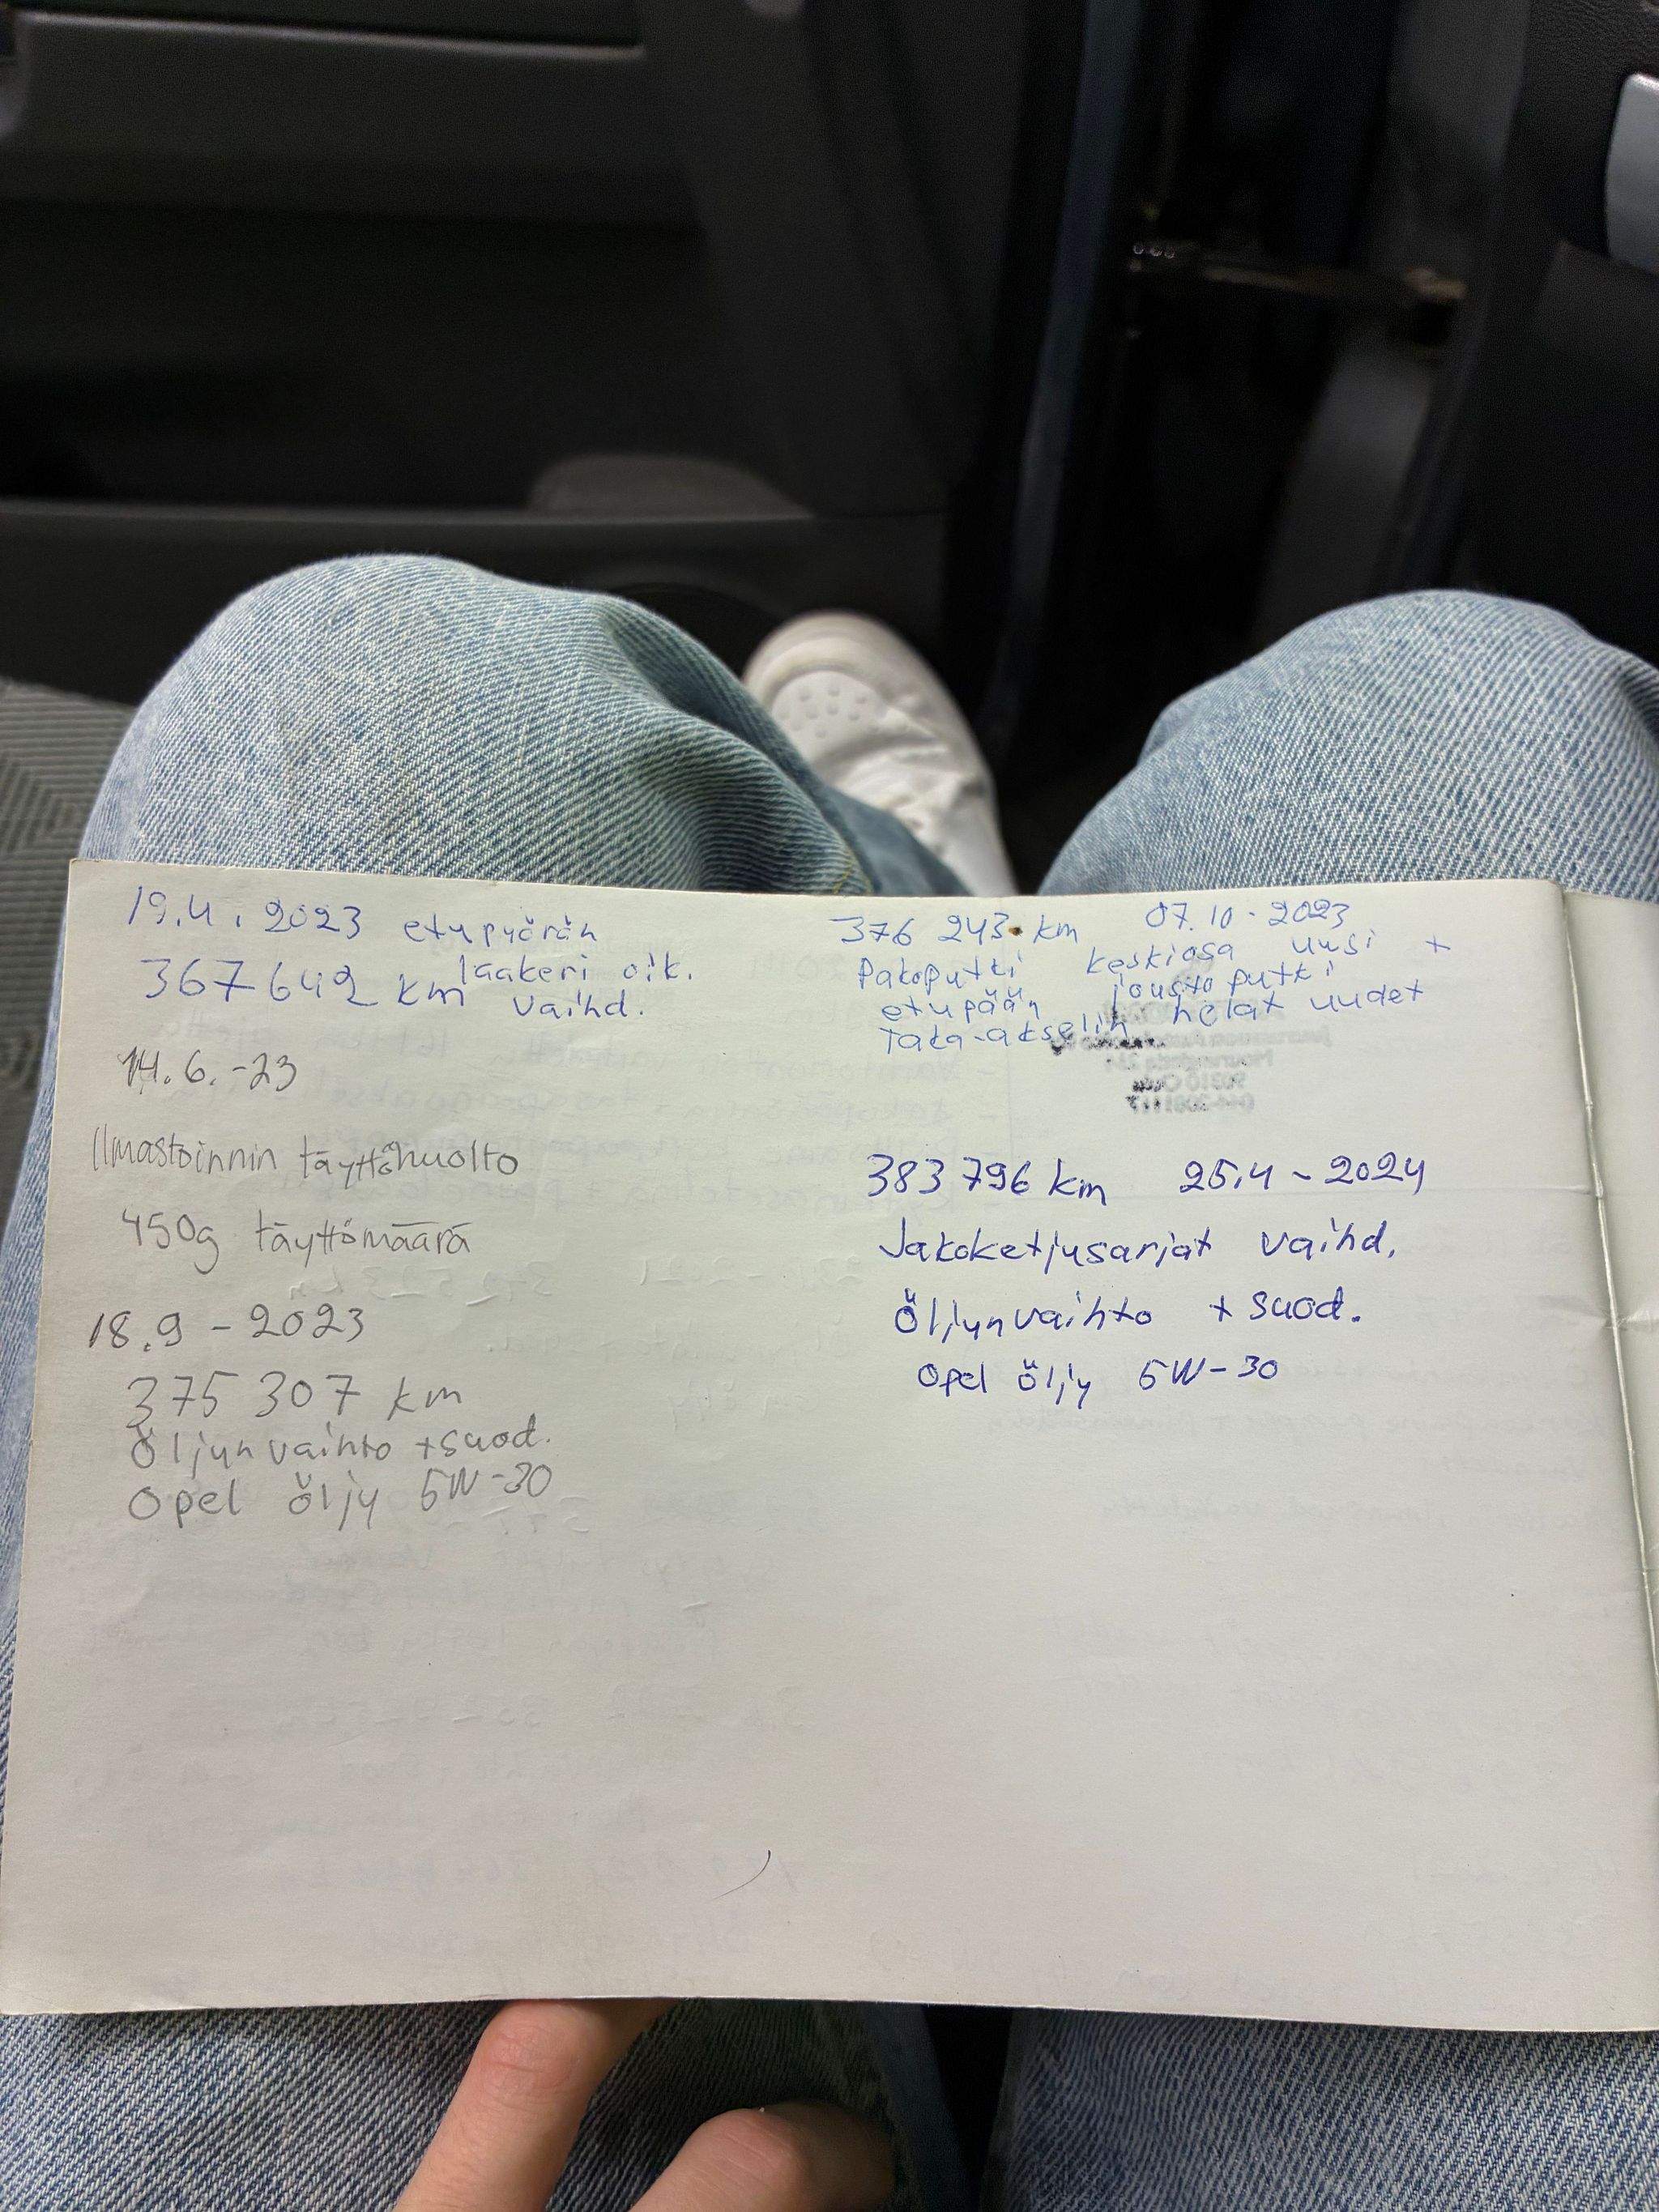 19.4. 2023 etupyörän
367 642 km laakeri oik.
vaihd.
14.6.-23
Ilmastoinnin täyttöhuolto
450g täyttömäärä
18.9 - 2023
375 307 km
Öljynvaihto + suod.
Opel öljy 5W-30
376 243 km 07.10 - 2023
Pakoputki keskiosa uusi +
etupään joustoputki
Taka-akselin helat uudet
383 796 km 25.4 - 2024
Jakoketjusarjat vaihd.
Öljynvaihto + suod.
Opel öljy 5W-30